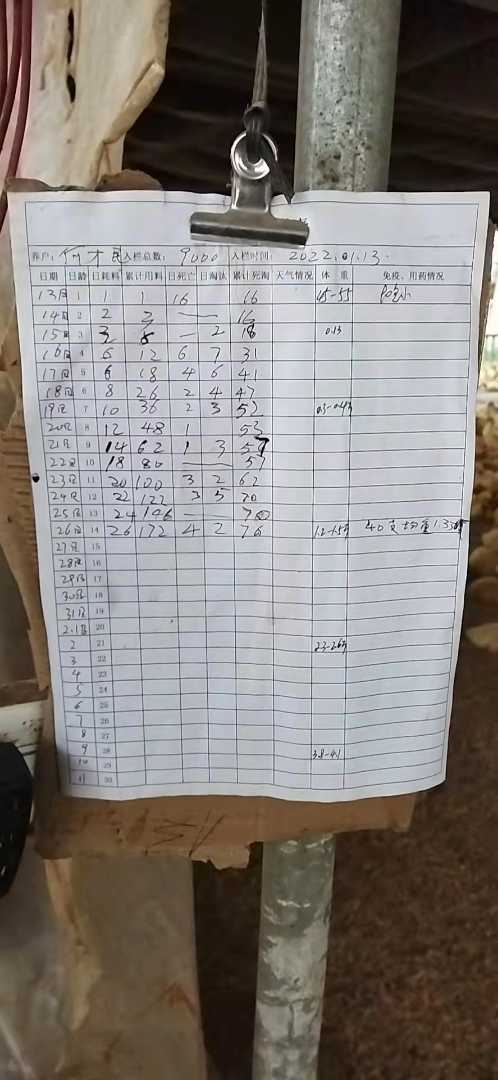 养户: 何才良 入栏总数: 9000 入栏时间: 2022.01.13.
日期 日龄 日耗料 累计用料 日死亡 日淘汰 累计死淘 天气情况 体 重 免疫、用药情况
13日 1 1 16 16 45-55
14日 2 2 3 — 16
15日 3 3 8 — 2 18 0.13
16日 4 6 12 6 7 31
17日 5 6 18 4 6 41
18日 6 8 26 2 4 47
19日 7 10 36 2 3 52
20日 8 12 48 1 53
21日 9 14 62 1 3 57
22日 10 18 80 — 57
23日 11 20 100 3 2 62
24日 12 22 122 3 5 70
25日 13 24 146 — — 70
26日 14 26 172 4 2 76 40 均重1.33
27日 15
28日 16
29日 17
30日 18
31日 19
2.1日 20
2 21
3 22
4 23
5 24
6 25
7 26
8 27
9 28 3.8-4.1
10 29
11 30